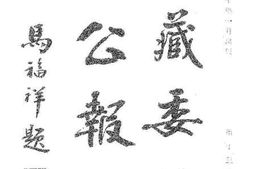 藏委
公報
馬福祥題